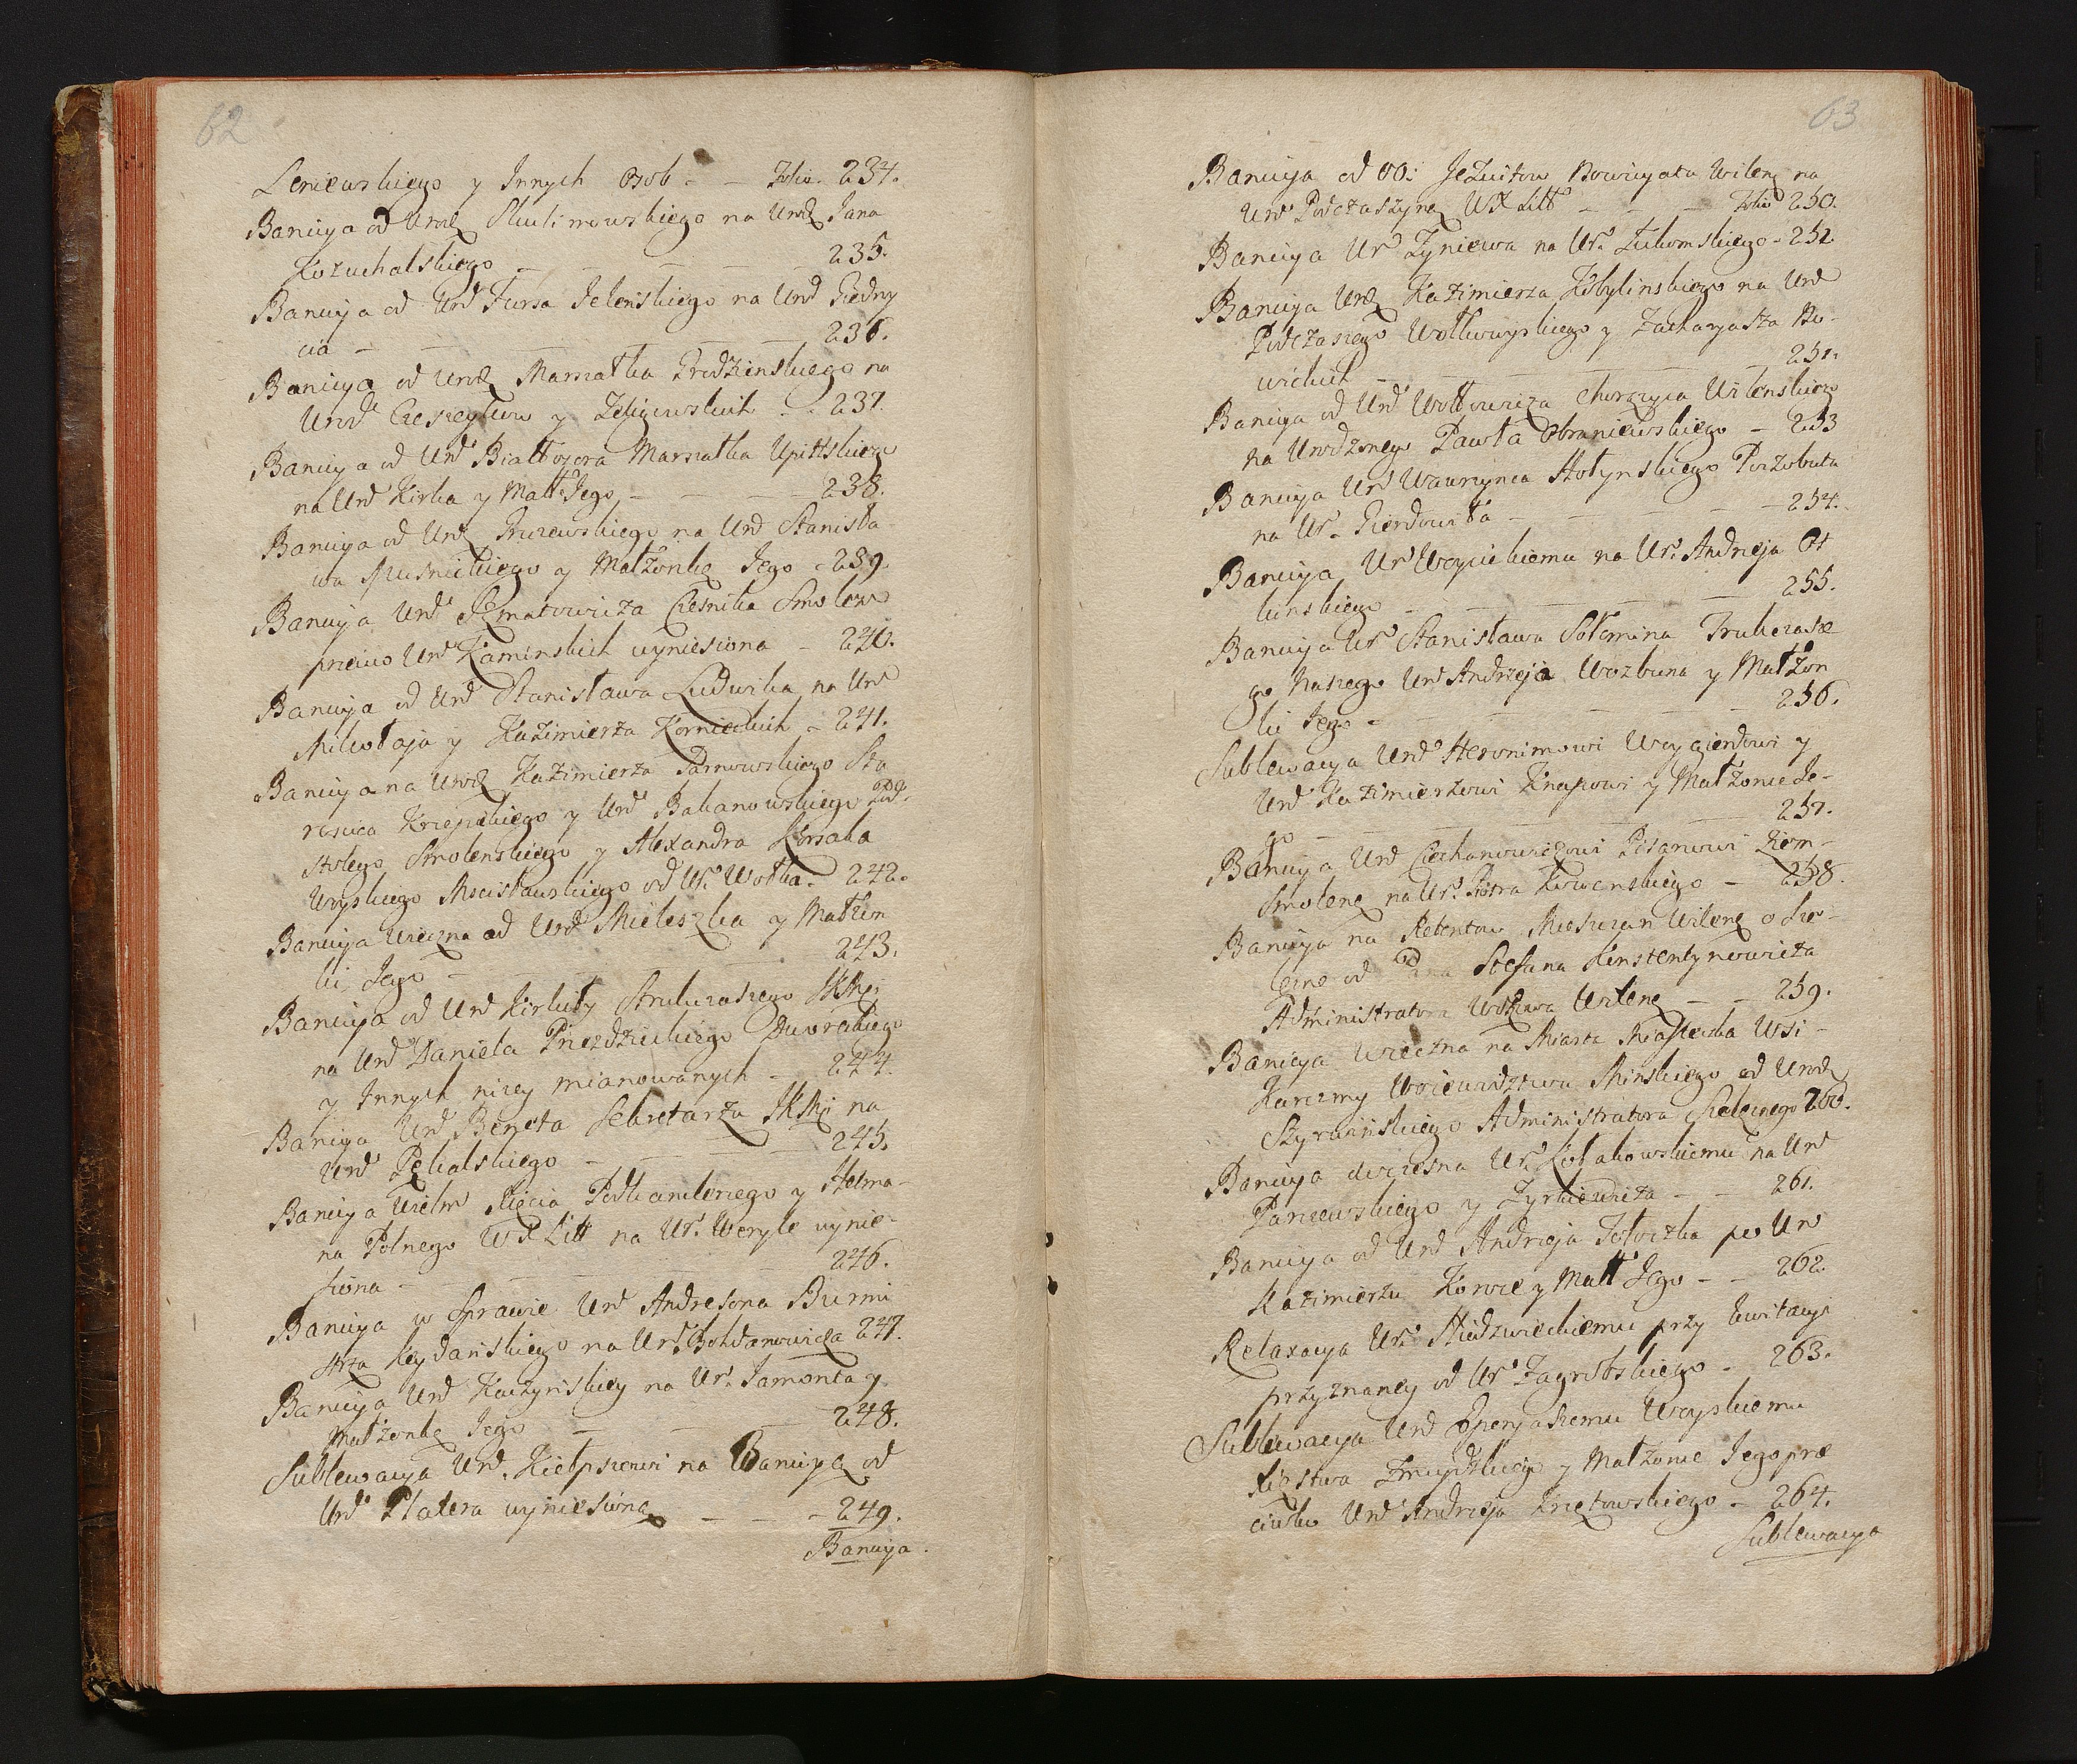 62
Leniewskiego y Innych Osob - - Folio. 234.
Banicya od Urodz Skulimowskiego na Urodz Jana
Kozuchalskiego - - - - 235.
Banicya od Urd Fursa Jelenskiego na Urd Giedry
cia - - - - 236.
Banicya od Urodz Marszałka Grodzienskiego na
Urod Czeszeykow y Zeligowskich - - 237.
Banicya od Urd Białłozora Marszałka Upittskiego
na Urd Kirka y Małł Jego - - - 238.
Banicya od Urdz Gruzewskiego na Urd Stanisła
wa Musnickiego y Małżonkę Jego - 239.
Banicya Urd Ematowicza Czesnika Smolen
przeciwo Urd Kaminskich wyniesiona - 240.
Banicya od Urd Stanisława Ludwika na Urd
Mikołaja y Kazimierza Kornickich - 241.
Banicya na Urodz Kazimierza Sarnowskiego Sta
roscica Krzepickiego y Urd Bakanowskiego Pod-
stolego Smolenskiego y Alexandra Korsaka
Woyskiego Mscisławskiego od Ur. Wołka. 242.
Banicya wieczna od Urd Mieleszka y Małżon
ki Jego - - - 243.
Banicya od Urd Kirkiły Strukczaszego JKMci
na Urd Daniela Przezdzieckiego Dworskiego
y Innych nizey mianowanych - 244.
Banicya Urd Beneta Sekretarza JKMci na
Urd Rękalskiego - - - 245.
Banicya Wielm Xięcia Podkanclerzego y Hetma-
na Polnego WXLitt na Ur. Weryle wynie-
siona - - - - 246.
Banicya w Sprawie Urd Andresona Burmi
strza Keydanskiego na Urd. Bohdanowicza 247.
Banicya Urd Kuczynskiey na Ur. Jamonta y
Małżonkę Jego - - - 248.
Sublewacya Urd. Kiełpszowi na Banicyą od
Urd Platera wyniesioną - - - 249.
Banicya.
63
Banicya od OO: Jezuitow Prowincyata Wilen na
Urd Podczaszynę WX Litt - - - Folio 250.
Banicya Ur Zyniewa na Ur. Łukomskiego - 251.
Banicya Urdz Kazimierza Kobylinskiego na Urd
Podczaszego Wołkowyskiego y Zacharyasza Bu-
wickich - - - - 252.
Banicya od Urd Wołłowicza Chorązyca Wilenskiego
na Urodzonego Pawła Obraniewskiego - 253
Banicya Urd Wawrzynca Hołynskiego Porzobuta
na Ur. Gierdowiła - - - - 254.
Banicya Ur Woynickiemu na Ur. Andrzeja Ot
kinskiego - - - - 255.
Banicya Ur Stanisława Sołomina Trukczasze
go Naszego Urd Andrzeja Wozbuna y Małżon
ki Jego - - - - 256.
Sublewacya Urd Hieronimowi Woygierdowi y
Urd Kazimierzowi Knapowi y Małżonce Je-
go - - - - 257.
Banicya Urd Ciechanowiczowi Pisarzowi Ziem-
Smolenę na Ur. Piotra Kowenskiego - 258.
Banicya na Retentow Mieszczan Wilenę o Sze-
lęzne od Stefana Konstentynowicza
Administratora Wdztwa Wilenę - - 259.
Banicya Wieczna na Miasta Miasteczka Wsi-
Karczmy Woiewodztwa Minskiego od Urodz
Szyranskiego Administratora Szelęznego 260.
Banicya doczesna Ur. Łobakowskiemu na Urd
Parzewskiego y Zyrkiewicza - - 261.
Banicya od Urd Andrzeja Tołoczka po Ur
Kazimierzu Korwie y Małł Jego - - 262.
Relaxacya Ur. Niedzwieckiemu przy kwitacyi
przyznaney od Ur Zagrobskiego - 263.
Sublewacya Urd Eperyaszemu Woyskiemu
Xięstwa Zmuydzkiego y Małżonce Jego prze
ciwko Urd Andrzeja Krzętowskiego - 264.
Sublewacya